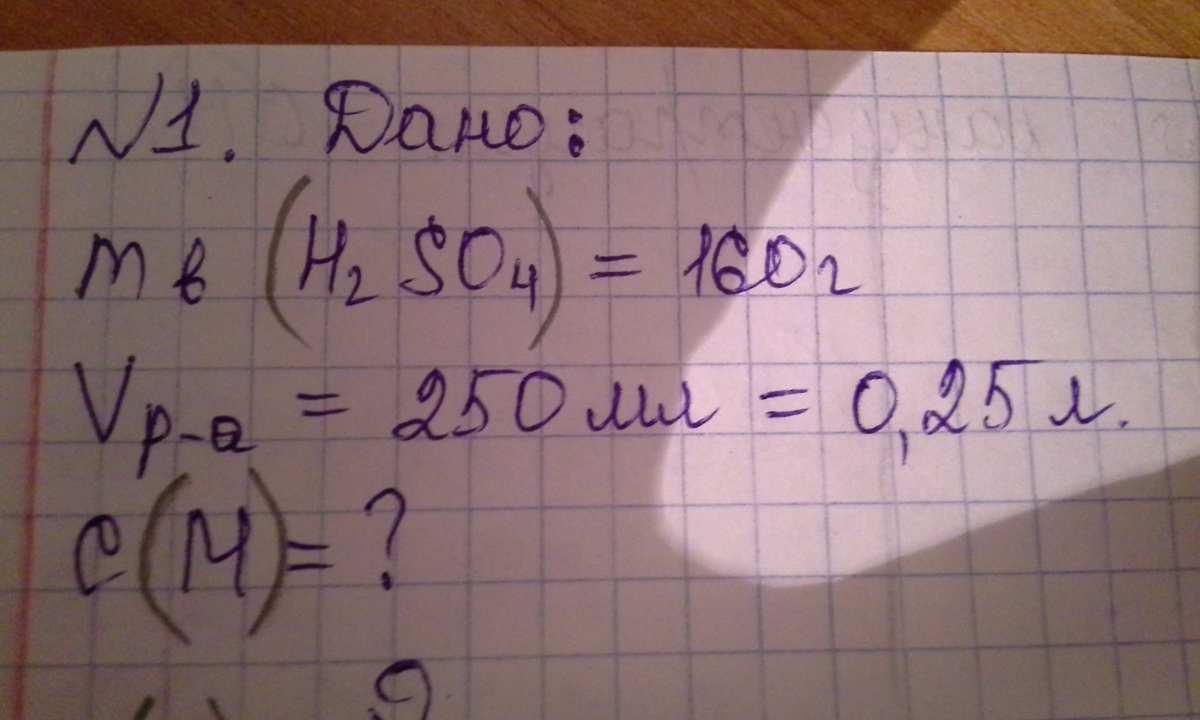 №1. Дано:
m в (H₂SO₄) = 160г
Vр-а = 250 мл = 0,25 л.
C(M) = ?